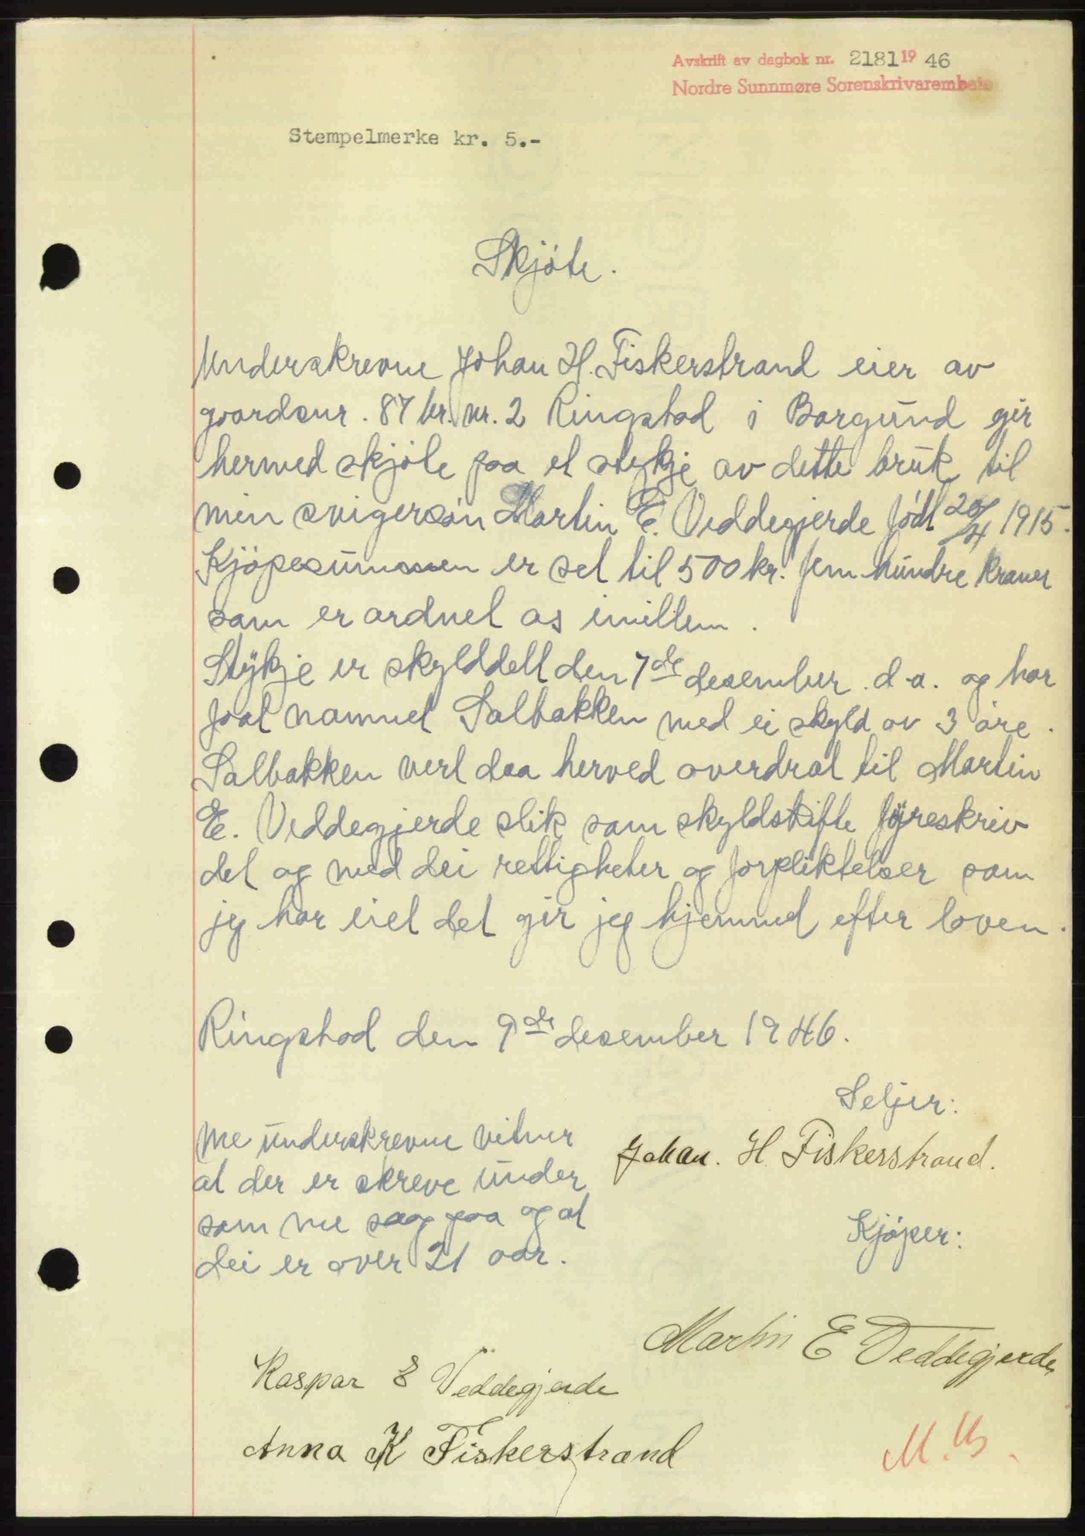 Avskrift av dagbok nr. 2181 19 46
Nordre Sunnmøre Sorenskrivarembete
Stempelmerke kr. 5.-
Skjöte.
Underskrevne Johan H. Fiskerstrand eier av
gaardsnr. 87 br. nr. 2 Ringstad i Borgund gir
hermed skjöte paa et stykje av dette bruk til
min svigersön Martin E. Veddegjerde född 20/4 1915.
Kjöpesummen er set til 500 kr. fem hundre kroner
som er ordnet os imillem.
Stykje er skylddelt den 7de desember d.a. og har
faat namnet Salbakken med ei skyld av 3 öre.
Salbakken vert daa herved overdrat til Martin
E. Veddegjerde slik som skyldskifte fyreskriv
det og med dei rettigheter og forpliktelser som
jeg har eiet det gir jeg hjemmel efter loven.
Ringstad den 9de desember 1946.
Seljer:
Johan. H Fiskerstrand.
me underskrevne vitner
at der er skreve under
som me saag paa og at
dei er over 21 aar.
Kjöper:
Martin E Veddegjerde
Kaspar E Veddegjerde
Anna K Fiskerstrand